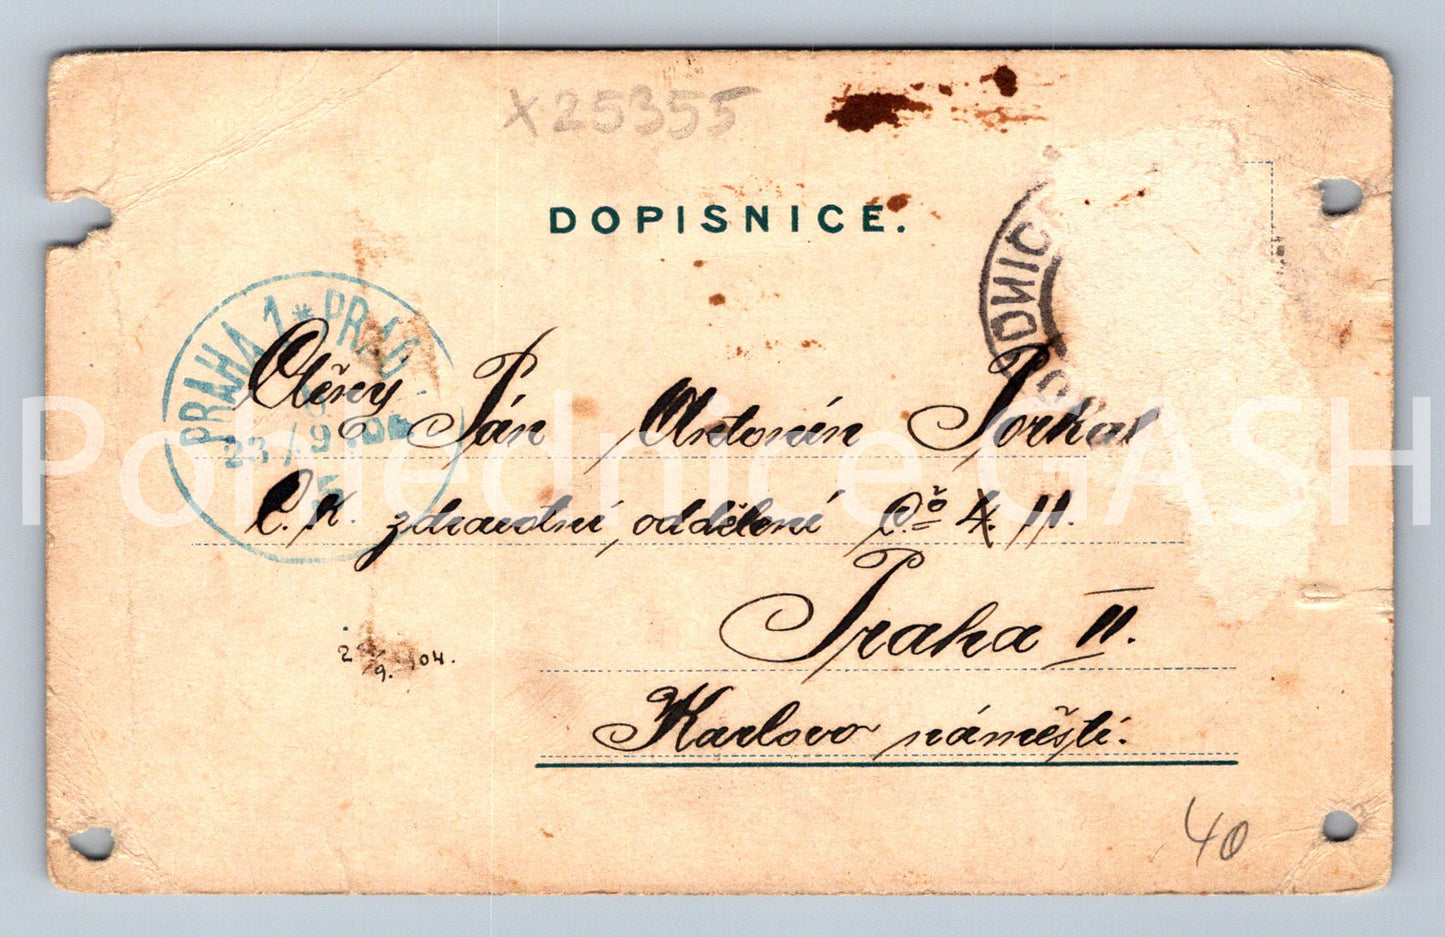 X 25355
DOPISNICE.
PRAHA 1 * PRAG
23/9 04
Ctěný
Pán Antonín
C. K. zdravotní oddělení Čº 4. II.
Praha II.
Karlovo náměstí.
9. 04.
40
Pohlednice GASH